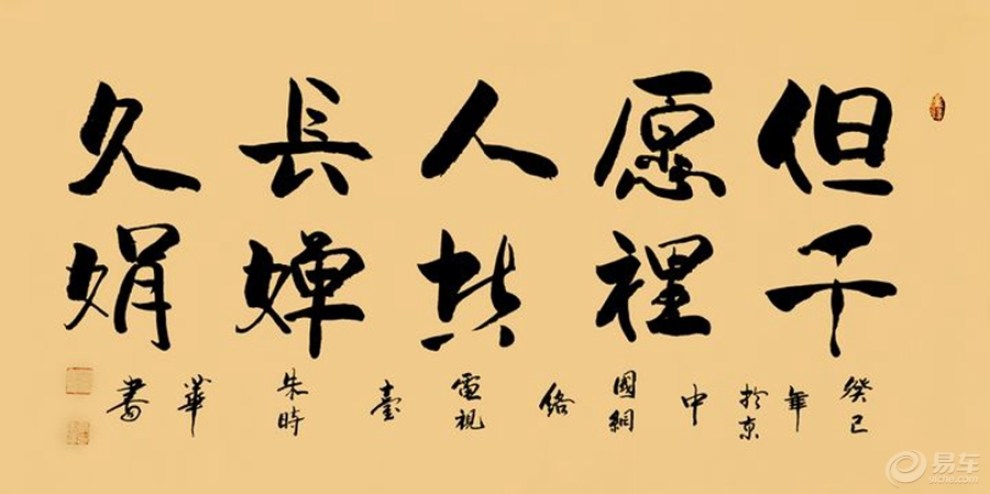 但愿人長久
千裡共嬋娟
癸巳年於京中國網絡電視臺朱時華書
易车
yiche.com